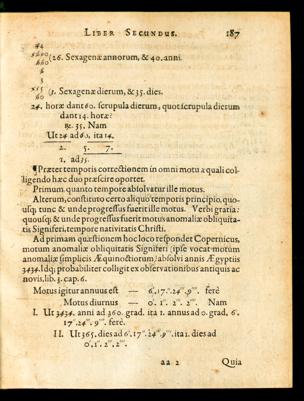 LIBER SECUNDUS. 187
(26. Sexagenæ annorum, & 40. anni.
6
3
(1. Sexagenæ dierum, & 35. dies.
60
24. horæ dant 60. scrupula dierum, quot scrupula dierum
dant 14. horæ?
&. 35. Nam
Ut 24 ad 60, ita 14.
2. 5. 7.
1. ad 35.
¶Præter temporis correctionem in omni motu æquali col-
ligendo hæc duo præscire oportet.
Primum quanto tempore absolvatur ille motus.
Alterum, constituto certo aliquo temporis principio, quo-
usque tunc & unde progressus fuerit ille motus. Verbi gratia:
quousque & unde progressus fuerit motus anomaliæ obliquita-
tis Signiferi, tempore nativitatis Christi.
Ad primam quæstionem hoc loco respondet Copernicus,
motum anomaliæ obliquitatis Signiferi (ipse vocat motum
anomaliæ simplicis Æquinoctiorum) absolvi annis Ægyptiis
3434. Idque probabiliter colligit ex observationibus antiquis ac
novis, lib. 3. cap. 6.
Motus igitur annuus est — 6'. 17''. 24'''. 9''''. ferè
Motus diurnus — 0'. 1''. 2'''. 2''''. Nam
I. Ut 3434. anni ad 360. grad. ita 1. annus ad 0. grad. 6'.
17''. 24'''. 9''''. ferè.
II. Ut 365. dies ad 6'. 17''. 24'''. 9''''. ita 1. dies ad
0'. 1''. 2'''. 2''''.
aa 2 Quia